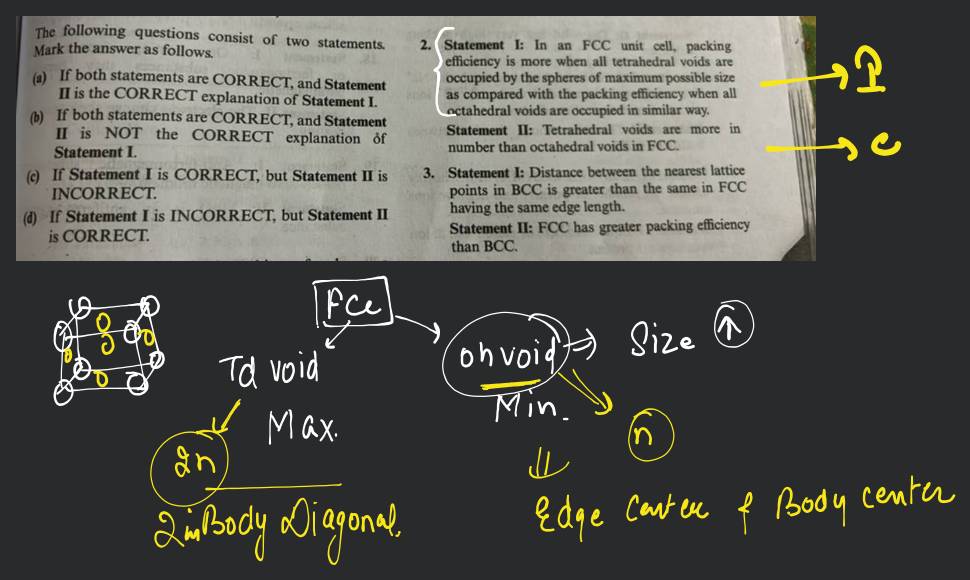 The following questions consist of two statements.
Mark the answer as follows.
(a) If both statements are CORRECT, and Statement
II is the CORRECT explanation of Statement I.
(b) If both statements are CORRECT, and Statement
II is NOT the CORRECT explanation of
Statement I.
(c) If Statement I is CORRECT, but Statement II is
INCORRECT.
(d) If Statement I is INCORRECT, but Statement II
is CORRECT.
2. Statement I: In an FCC unit cell, packing
efficiency is more when all tetrahedral voids are
occupied by the spheres of maximum possible size
as compared with the packing efficiency when all
octahedral voids are occupied in similar way.
Statement II: Tetrahedral voids are more in
number than octahedral voids in FCC.
3. Statement I: Distance between the nearest lattice
points in BCC is greater than the same in FCC
having the same edge length.
Statement II: FCC has greater packing efficiency
than BCC.
I
C
FCC
Td void
Max.
2n
2 in Body Diagonal.
oh void
Size ↑
Min.
n
Edge Center & Body center